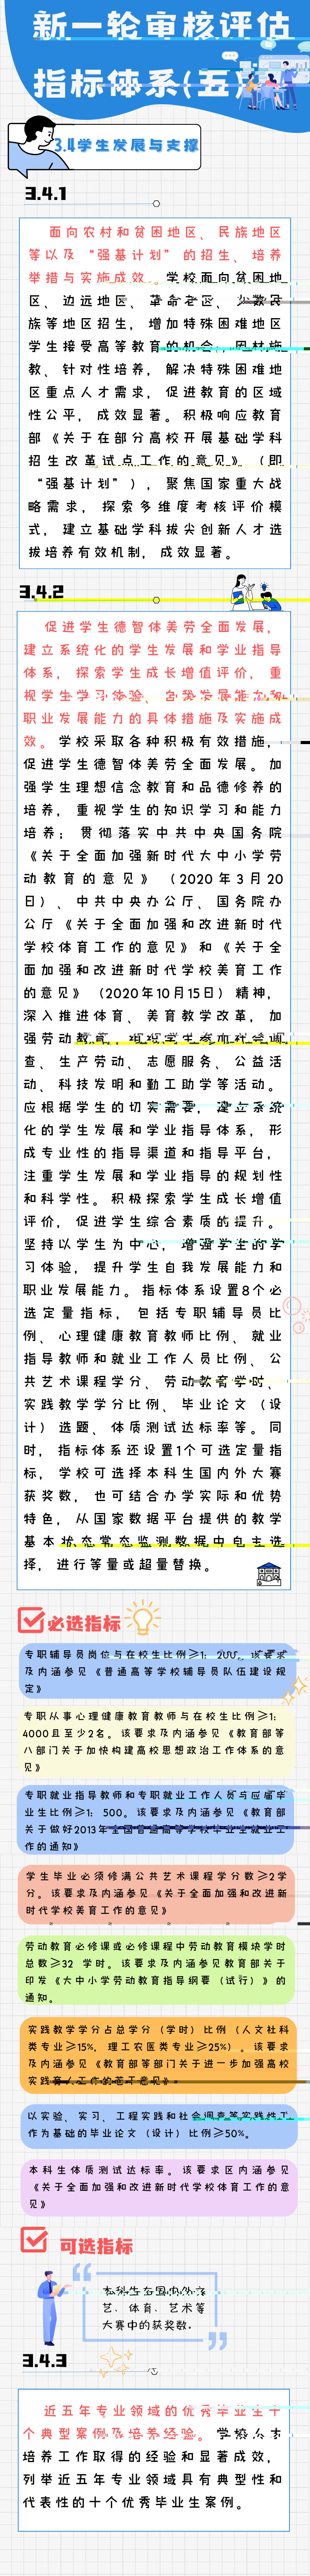 新一轮审核评估
指标体系(五)
3.4学生发展与支撑
3.4.1
面向农村和贫困地区、民族地区
等以及“强基计划”的招生、培养
举措与实施成效。学校面向贫困地
区、边远地区、
族等地区招生，增加特殊困难地区
学生接受高等教育的机会；因材施
教、针对性培养，解决特殊困难地
区重点人才需求，促进教育的区域
性公平，成效显著。积极响应教育
部《关于在部分高校开展基础学科
招生改革试点工作的意见》（即
“强基计划”），聚焦国家重大战
略需求，探索多维度考核评价模
式，建立基础学科拔尖创新人才选
拔培养有效机制，成效显著。
3.4.2
促进学生德智体美劳全面发展，
建立系统化的学生发展和学业指导
体系，探索学生成长增值评价，重
视学生学习体验、自我发展能力和
职业发展能力的具体措施及实施成
效。学校采取各种积极有效措施，
促进学生德智体美劳全面发展。加
强学生理想信念教育和品德修养的
培养，重视学生的知识学习和能力
培养；贯彻落实中共中央国务院
《关于全面加强新时代大中小学劳
动教育的意见》（2020年3月20
日）、中共中央办公厅、国务院办
公厅《关于全面加强和改进新时代
学校体育工作的意见》和《关于全
面加强和改进新时代学校美育工作
的意见》（2020年10月15日）精神，
深入推进体育、美育教学改革，加
强劳动
查、生产劳动、志愿服务、公益活
动、科技发明和勤工助学等活动。
应根据学生的切实需要，建立系统
化的学生发展和学业指导体系，形
成专业性的指导渠道和指导平台，
注重学生发展和学业指导的规划性
和科学性。积极探索学生成长增值
评价，促进学生综合素质的
坚持以学生为中心，增强学生的学
习体验，提升学生自我发展能力和
职业发展能力。指标体系设置8个必
选定量指标，包括专职辅导员比
例、心理健康教育教师比例、就业
指导教师和就业工作人员比例、公
共艺术课程学分、劳动
实践教学学分比例、毕业论文（设
计）选题、体质测试达标率等。同
时，指标体系还设置1个可选定量指
标，学校可选择本科生国内外大赛
获奖数，也可结合办学实际和优势
特色，从国家数据平台提供的教学
基本状态常态监测数据中自主选
择，进行等量或超量替换。
必选指标
专职辅导员岗位与在校生比例≥1：200。该要求
及内涵参见《普通高等学校辅导员队伍建设规
定》
专职从事心理健康教育教师与在校生比例≥1：
4000且至少2名。该要求及内涵参见《教育部等
八部门关于加快构建高校思想政治工作体系的意
见》
专职就业指导教师和专职就业工作人员与应届毕
业生比例≥1：500。该要求及内涵参见《教育部
关于做好2013年全国普通高等学校毕业生就业工
作的通知》
学生毕业必须修满公共艺术课程学分数≥2学
分。该要求及内涵参见《关于全面加强和改进新
时代学校美育工作的意见》
劳动教育必修课或必修课程中劳动教育模块学时
总数≥32 学时。该要求及内涵参见教育部关于
印发《大中小学劳动教育指导纲要（试行）》的
通知。
实践教学学分占总学分（学时）比例（人文社科
类专业≥15%，理工农医类专业≥25%）。该要求
及内涵参见《教育部等部门关于进一步加强高校
实践育人工作的若干意见》。
以实验、实习、工程实践和社会调查等实践性工
作为基础的毕业论文（设计）比例≥50%。
本科生体质测试达标率。该要求区内涵参见
《关于全面加强和改进新时代学校体育工作的意
见》
可选指标
本科生在国内外文
艺、体育、艺术等
大赛中的获奖数。
3.4.3
近五年专业领域的优秀毕业生十
个典型案例及培养经验。学校人才
培养工作取得的经验和显著成效，
列举近五年专业领域具有典型性和
代表性的十个优秀毕业生案例。